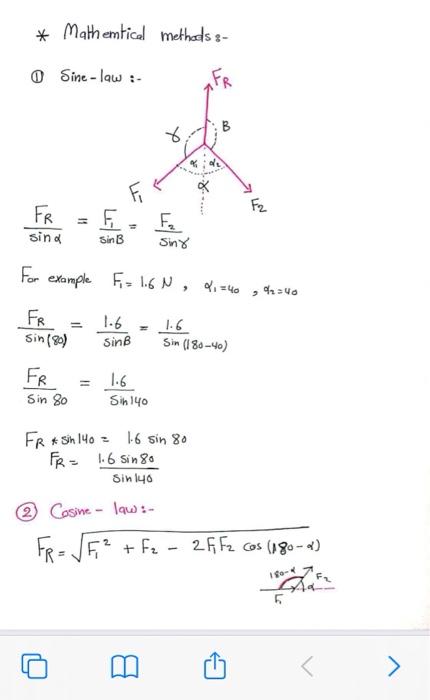 * Mathemtical methods :-
① Sine-law :-
FR
γ
B
α1
α2
F1
α
F2
FR/sinα = F1/sinB = F2/sinγ
For example F1 = 1.6 N , α1=40 , α2=40
FR/sin(80) = 1.6/sinB = 1.6/sin(180-40)
FR/sin 80 = 1.6/sin140
FR * sin140 = 1.6 sin 80
FR = 1.6 sin80/sin140
② Cosine-law :-
FR = √F1² + F2 - 2F1F2 cos(180-α)
180-α
F2
α
F1